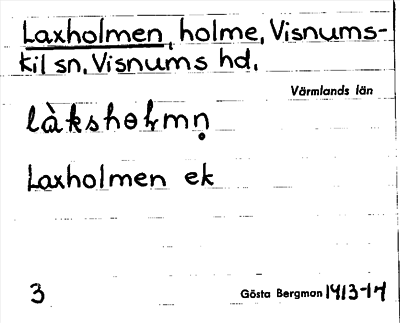 Laxholmen, holme, Visnums-
kil sn, Visnums hd.
Värmlands län
làksholmn̥
Laxholmen ek
3 Gösta Bergman 1913-14